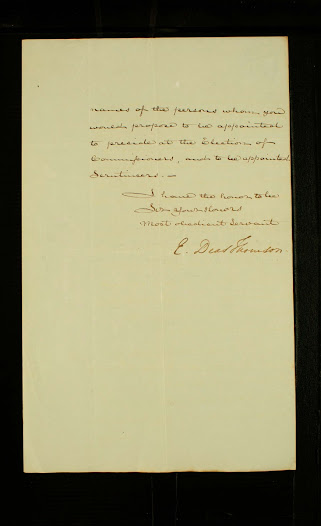 names of the persons whom you
would propose to be appointed
to preside at the Election of
Commissioners, and to be appointed
Scrutineers.—
I have the honor to be
Sir, Your Honor's
Most obedient Servant
E. Deas Thomson.